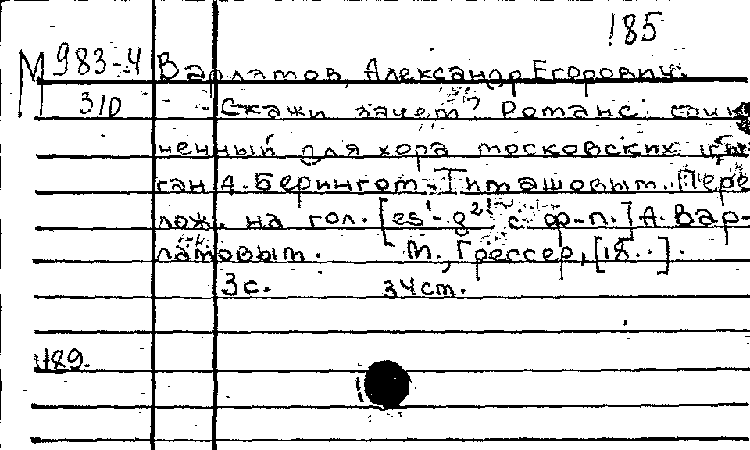 185
М 983-4 Варламов, Александр Егорович.
310 Скажи зачем? Романс, сочи-
ненный для хора московских цы-
ган А. Берингом-Тимашовым. Пере
лож. на гол. [es¹-g²] с ф-п.] А. Вар-
ламовым. М., Грессер, [18..].
3с. 34см.
489.